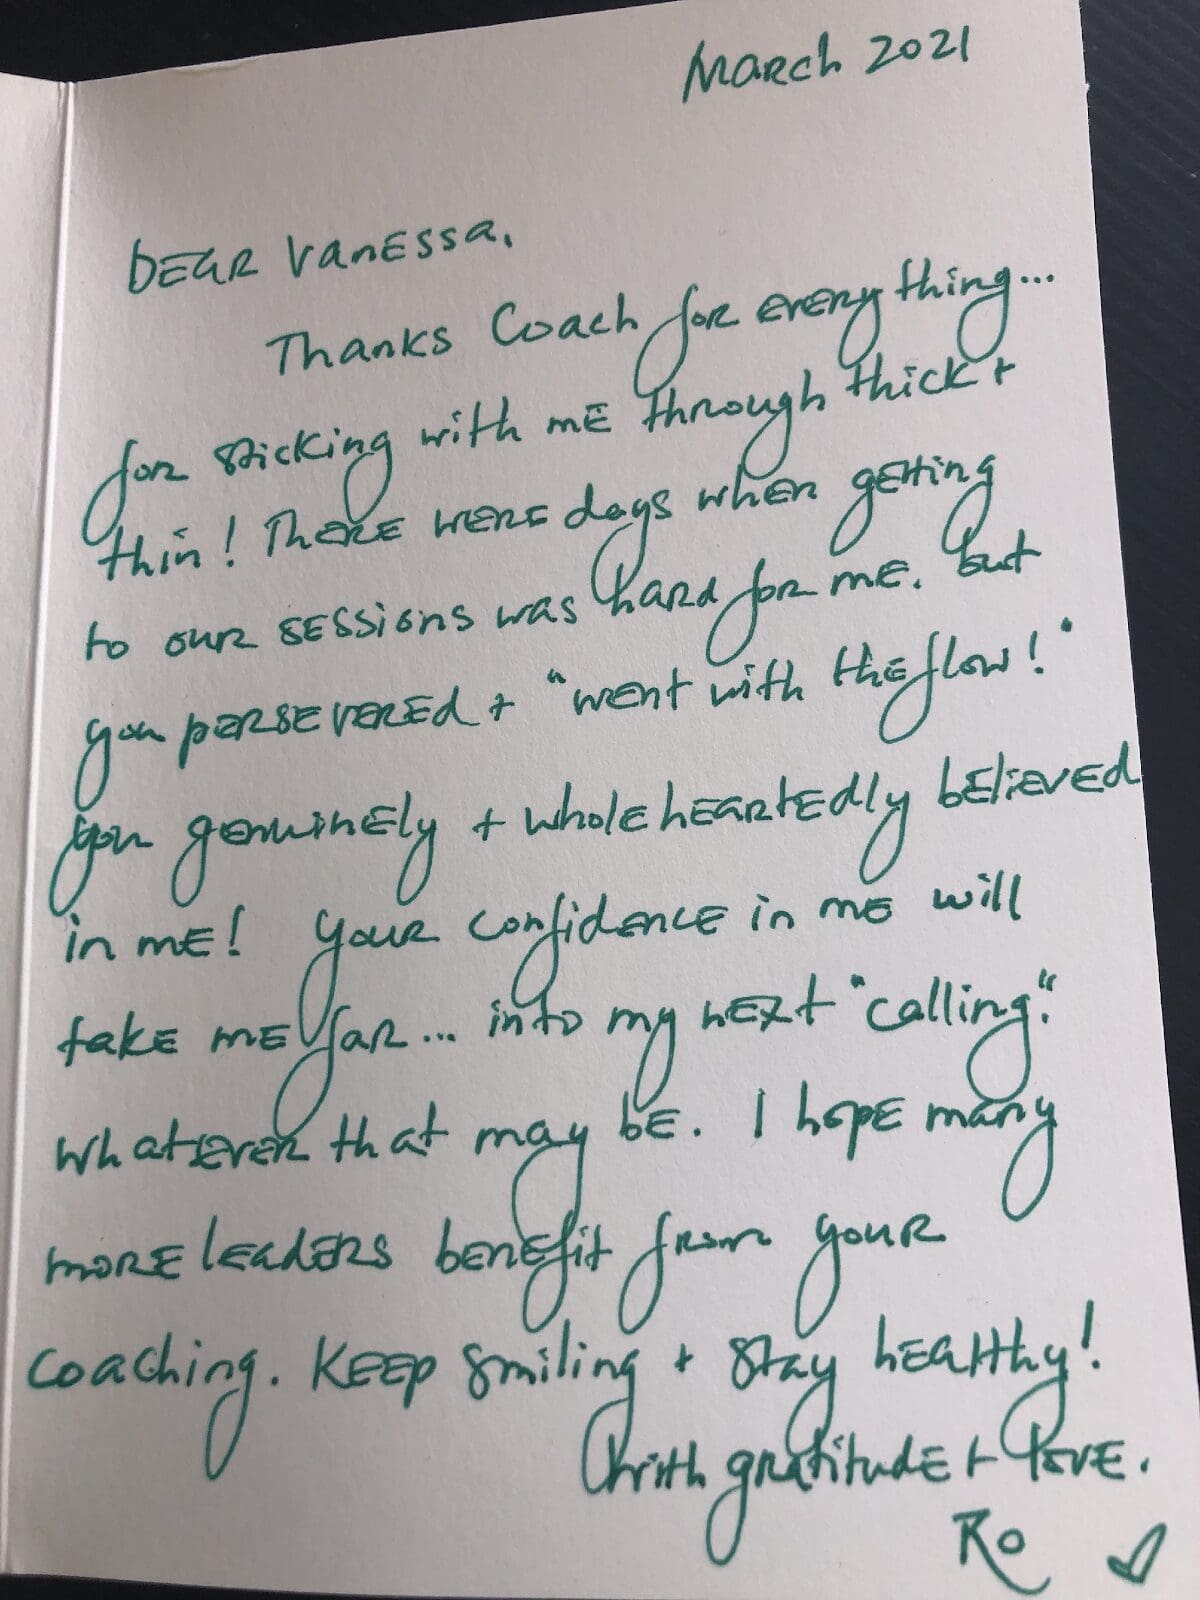 March 2021
Dear Vanessa,
Thanks Coach for everything...
for sticking with me through thick +
thin! There were days when getting
to our sessions was hard for me. But
you persevered + "went with the flow!"
You genuinely + wholeheartedly believed
in me! Your confidence in me will
take me far... into my next "calling."
Whatever that may be. I hope many
more leaders benefit from your
coaching. Keep smiling + stay healthy!
With gratitude + love.
Ro